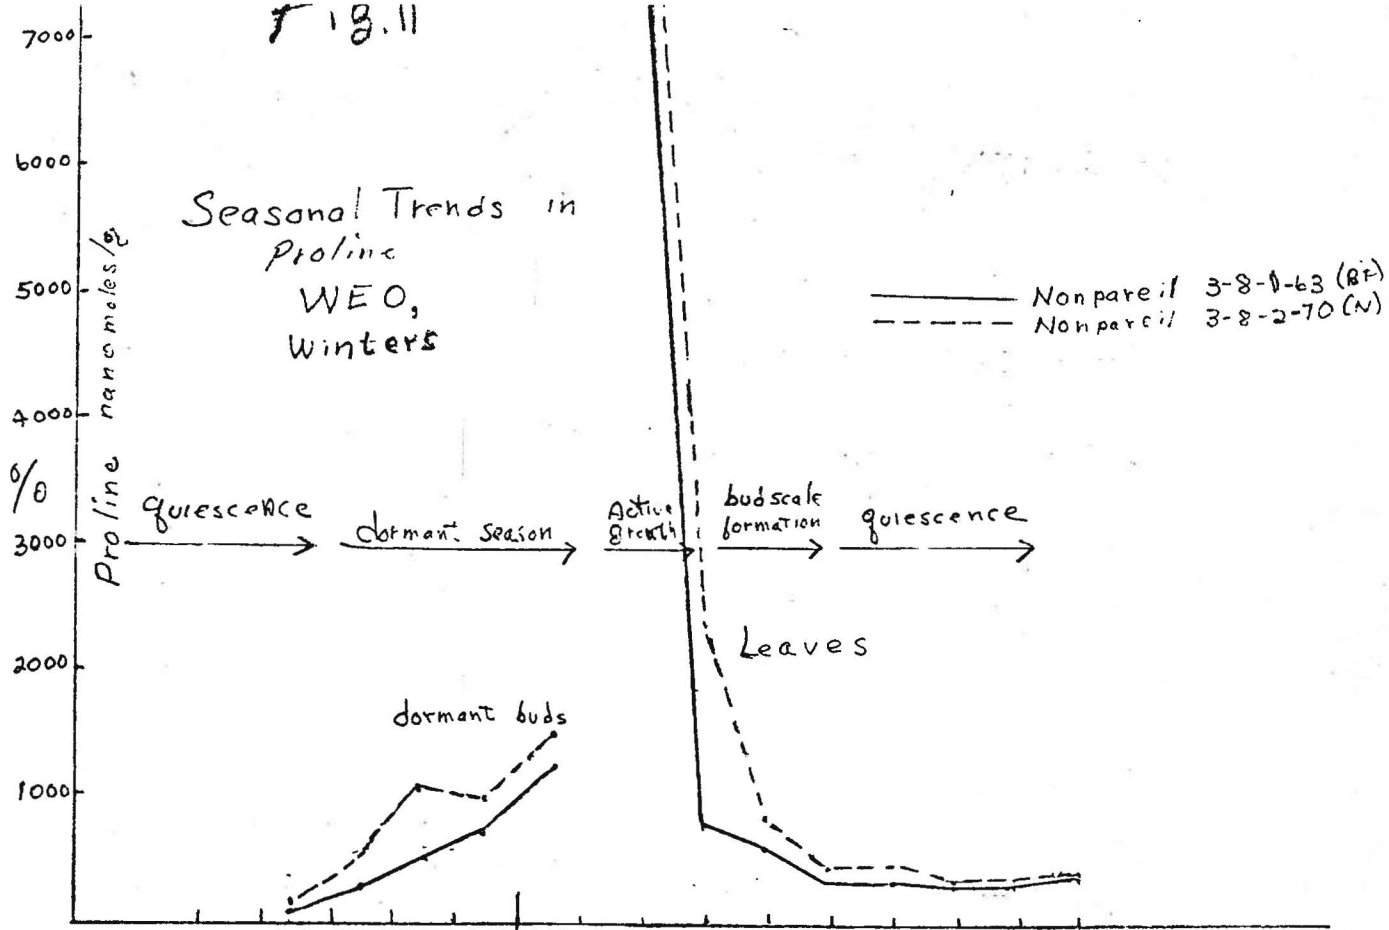 Fig. 11
7000
6000
5000
4000
3000
2000
1000
%
Proline nanomoles/g
Seasonal Trends in
Proline
WEO,
Winters
Nonpareil 3-8-1-63 (BF)
Nonpareil 3-8-2-70 (N)
quiescence
dormant season
Active
Growth
budscale
formation
quiescence
Leaves
dormant buds